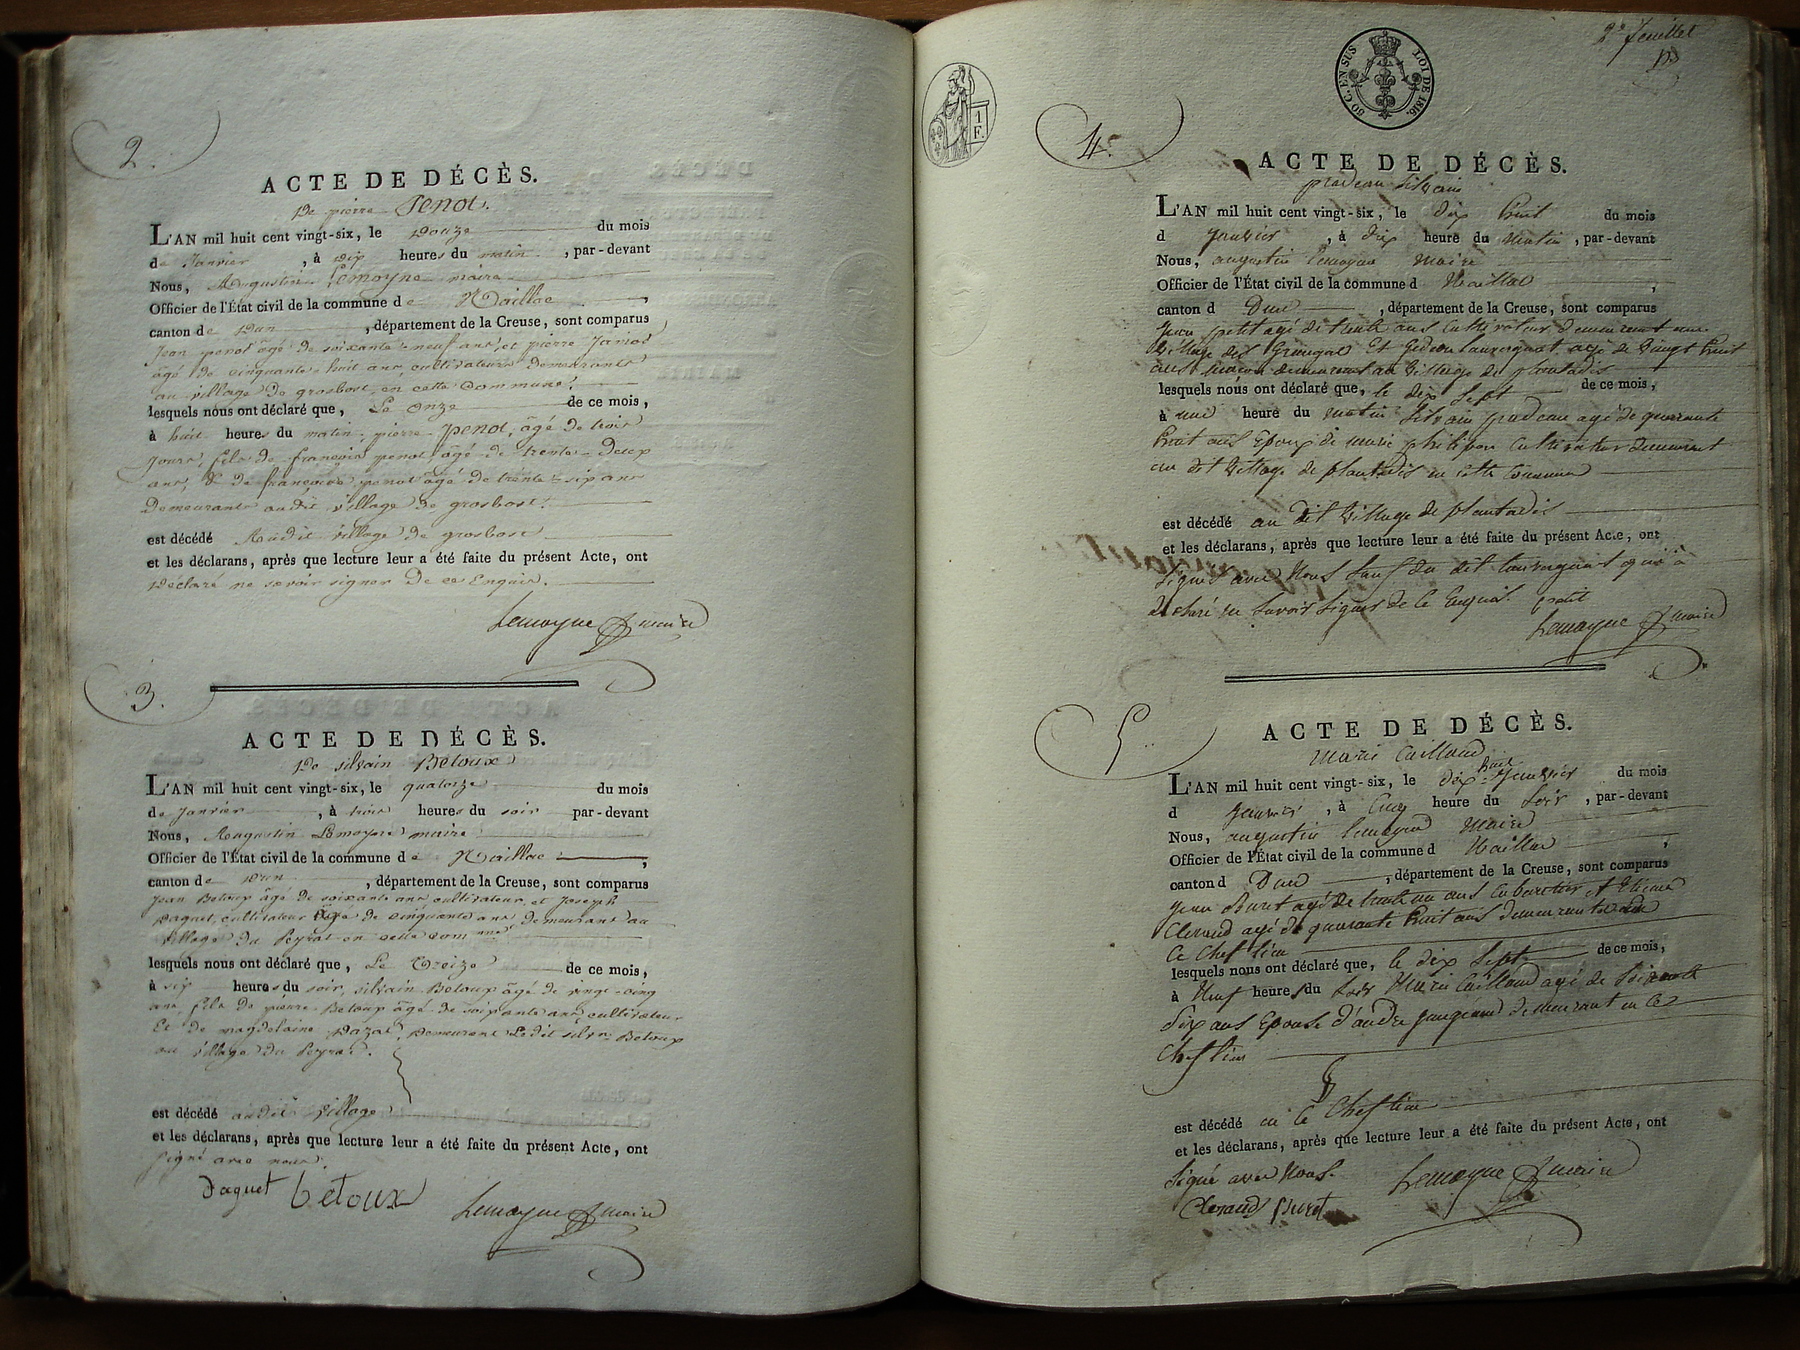 2.
ACTE DE DÉCÈS.
De pierre Penot.
L'AN mil huit cent vingt-six, le Douze du mois
de Janvier, à dix heures du matin, par-devant
Nous, Augustin Lemoyne maire
Officier de l'État civil de la commune de Naillac,
canton de Dun, département de la Creuse, sont comparus
Jean penot âgé de soixante-neuf ans, et pierre
âgé de cinquante-huit ans, cultivateurs demeurants
au village de grosbost, en cette commune,
lesquels nous ont déclaré que, Le onze de ce mois,
à huit heures du matin, pierre Penot, âgé de trois
jours, fils de françois penot âgé de trente-deux
ans, & de françoise penot âgé de trente-six ans
Demeurants audit village de grosbost.
est décédé Audit village de grosbost
et les déclarans, après que lecture leur a été faite du présent Acte, ont
Déclaré ne savoir signer De ce Enquis.
Lemoyne maire
3.
ACTE DE DÉCÈS.
De silvain Betoux
L'AN mil huit cent vingt-six, le quatorze du mois
de Janvier, à trois heures du soir par-devant
Nous, Augustin Lemoyne maire
Officier de l'État civil de la commune de Naillac,
canton de Dun, département de la Creuse, sont comparus
Jean Betoux âgé de soixante ans cultivateur, et Joseph
Daguet, cultivateur âgé de cinquante ans demeurant au
village du Peyrat en cette commune
lesquels nous ont déclaré que, Le Treize de ce mois,
à six heures du soir, silvain Betoux âgé de vingt-cinq
ans, fils de pierre Betoux âgé de soixante ans, cultivateur
Et de magdelaine Dazat, Demeurant Le dit silvain Betoux
au village du Peyrat.
est décédé audit village
et les déclarans, après que lecture leur a été faite du présent Acte, ont
signé avec nous.
Daguet betoux
Lemoyne maire
1 F.
50 C. EN SUS LOI DE 1816.
2e feuillet
4.
ACTE DE DÉCÈS.
pradeau Silvain
L'AN mil huit cent vingt-six, le dix huit du mois
d Janvier, à dix heure du matin, par-devant
Nous, augustin lemoyne Maire
Officier de l'État civil de la commune d Naillac,
canton d Dun, département de la Creuse, sont comparus
Jean petit agé de trente ans cultivateur demeurant au
village des et gedeon lauvergnat agé de vingt huit
ans maçon demeurant au village de plantadis
lesquels nous ont déclaré que, le dix sept de ce mois,
à une heure du matin Silvain pradeau agé de quarante
huit ans Epoux de marie philipon cultivateur demeurant
au dit village de plantadis en cette commune
est décédé au dit village de plantadis
et les déclarans, après que lecture leur a été faite du présent Acte, ont
signé avec nous sauf du dit lauvergnat qui a
déclaré ne savoir signer de ce Enquis. petit
Lemoyne maire
5
ACTE DE DÉCÈS.
Marie Caillaud
L'AN mil huit cent vingt-six, le dix huit Janvier du mois
d Janvier, à Cinq heure du Soir, par-devant
Nous, augustin lemoyne Maire
Officier de l'État civil de la commune d Naillac,
canton d Dun, département de la Creuse, sont comparus
Jean Buret agé de trente un ans cabaretier et Etienne
Cleraud agé de quarante huit ans demeurants
Ce Chef lieu
lesquels nous ont déclaré que, le dix Sept de ce mois,
à Neuf heures du Soir Marie Caillaud agé de soixante
dix ans Epouse d'andré demeurant en Ce
Chef lieu
est décédé en Ce Chef lieu
et les déclarans, après que lecture leur a été faite du présent Acte, ont
Signé avec Nous. Lemoyne maire
Cleraud Buret